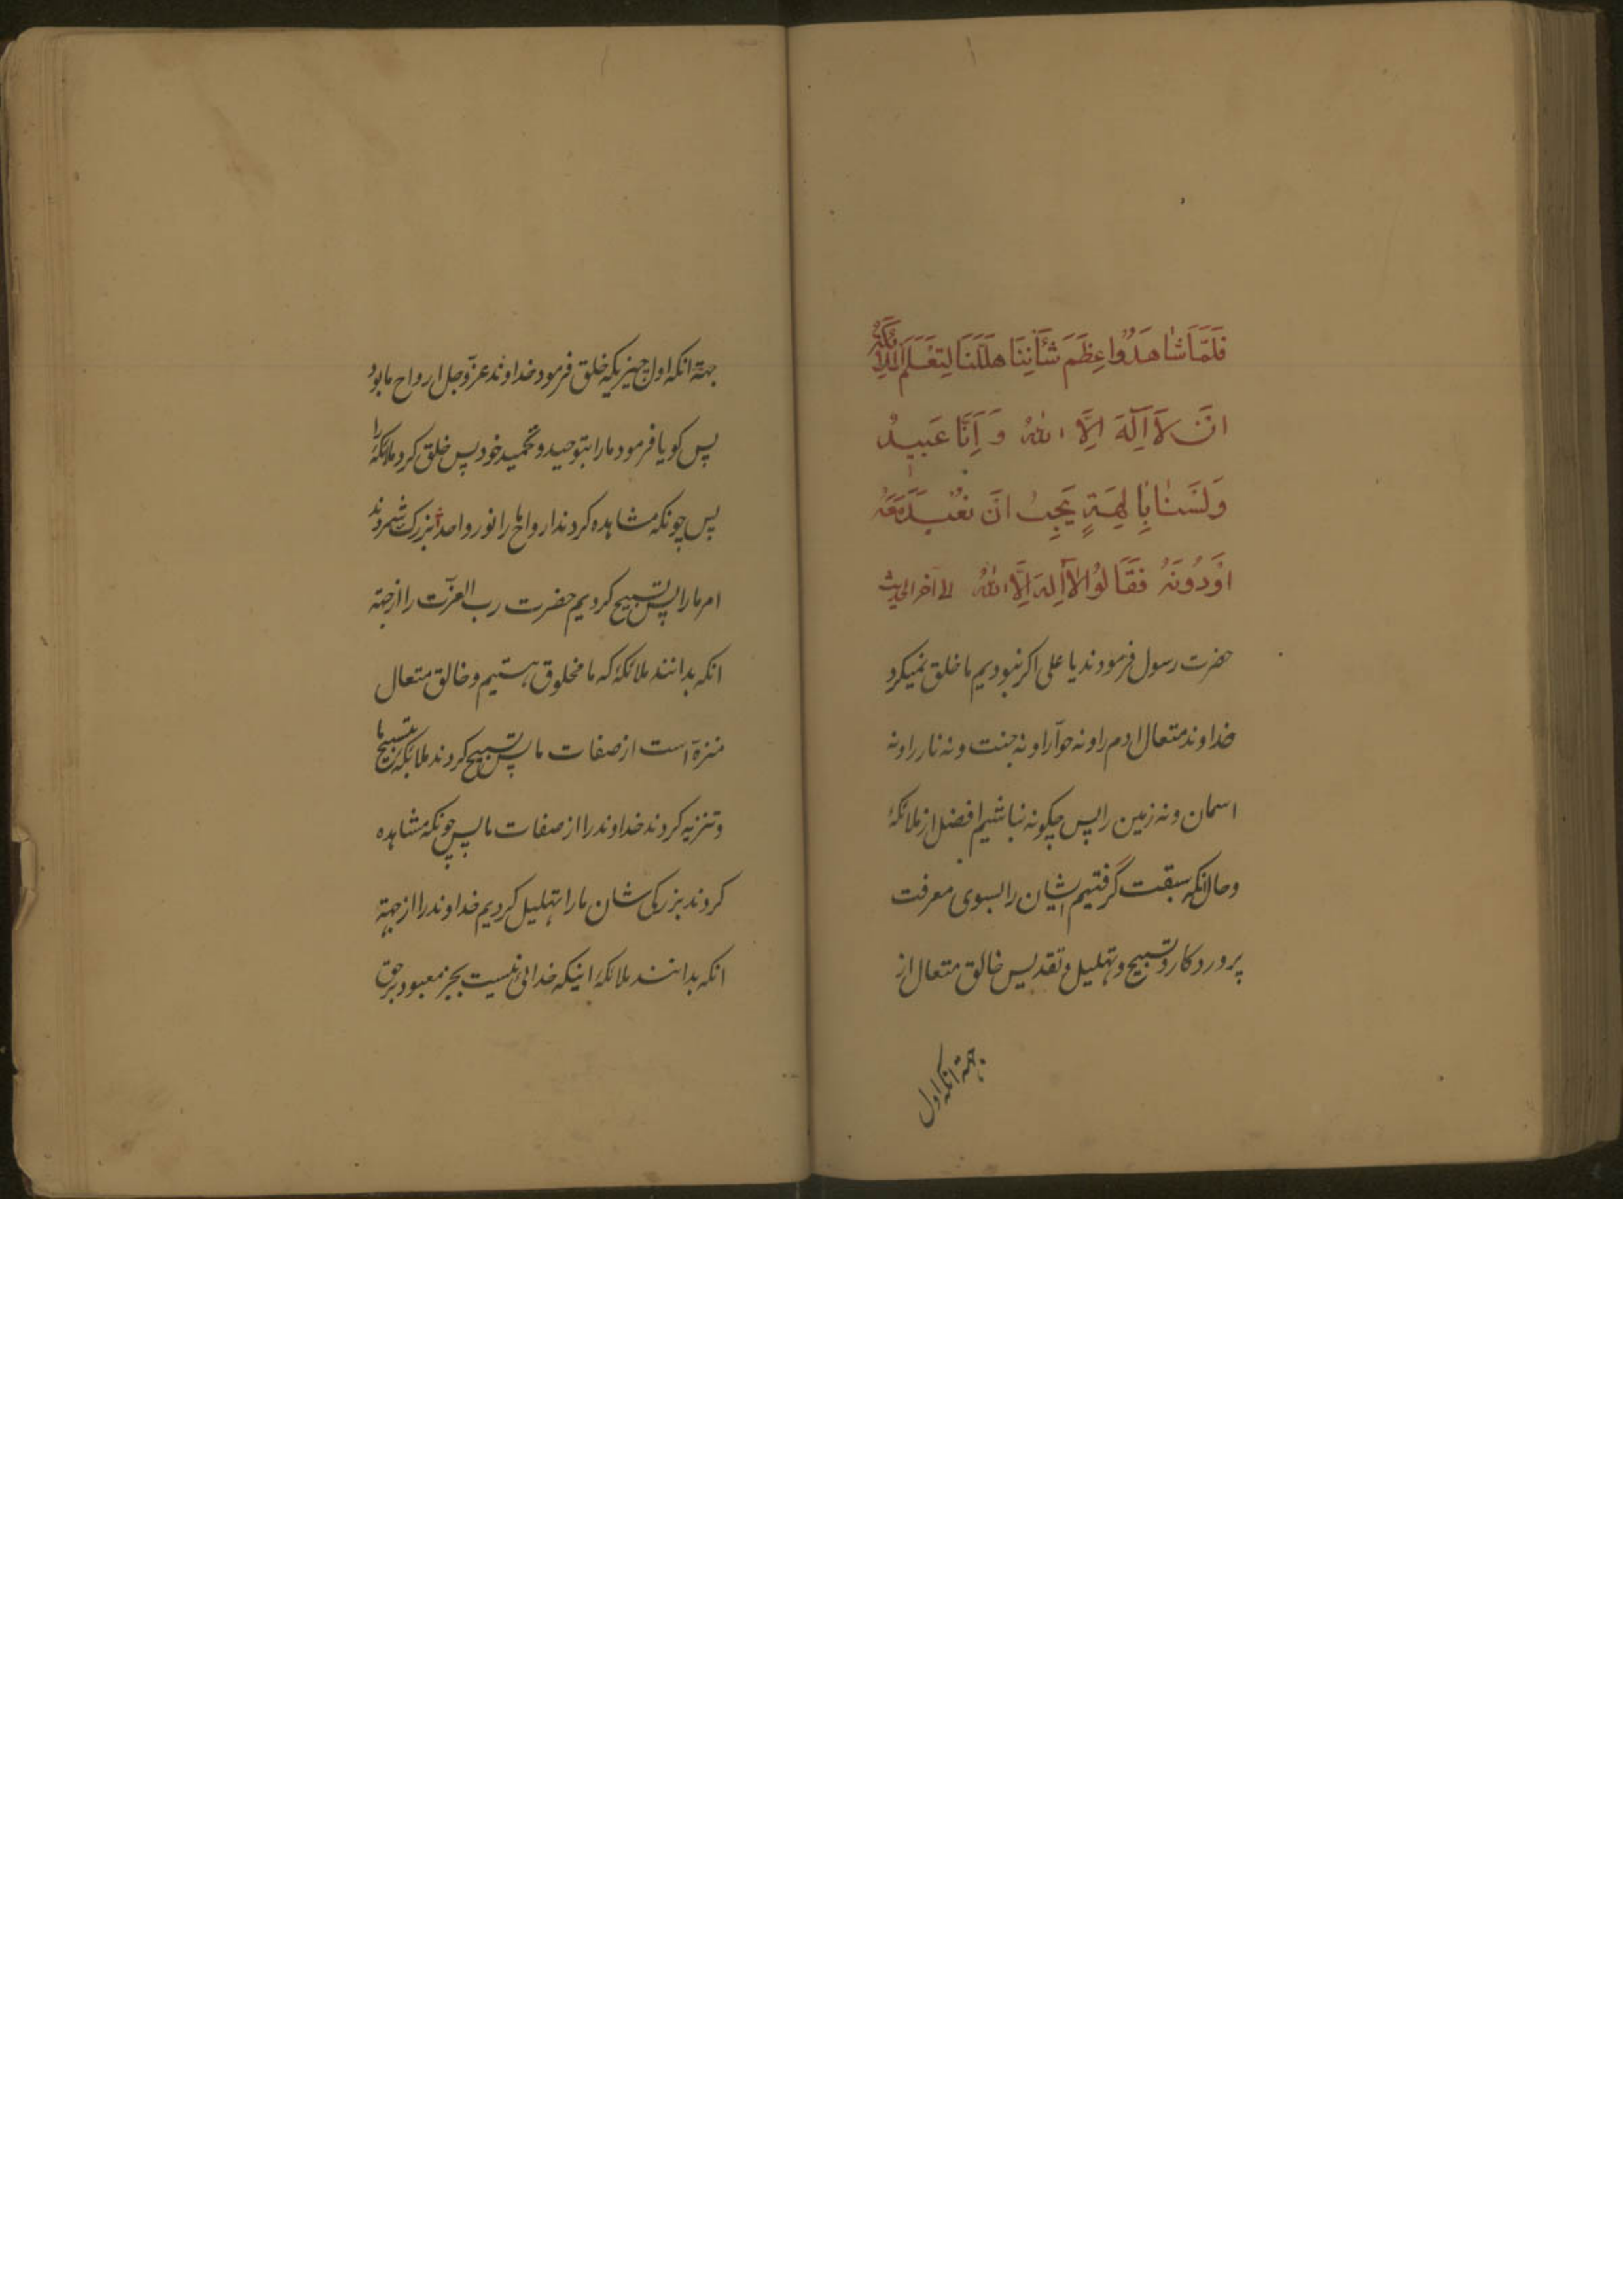 فَلَمَّا شَاهَدُوا عِظَمَ شَأْنِنَا هَلَّلْنَا لِتَعْلَمَ الْمَلَائِکَةُ
اَنْ لَا اِلَهَ اِلَّا اللهُ وَ اَنَّا عَبِیدٌ
وَلَسْنَا بِاٰلِهَةٍ یَجِبُ اَنْ نُعْبَدَ مَعَهُ
اَوْ دُونَهُ فَقَالُوا لَا اِلَهَ اِلَّا اللهُ الی آخر الحدیث
حضرت رسول فرمودند یا علی اکر نبودیم ما خلق نمیکرد
خداوند متعال ادم را و نه حوّا را و نه جنت و نه نار را و نه
اسمان و نه زمین را پس چکونه نباشیم افضل از ملائکهٔ
و حال انکه سبقت گرفتیم ایشان را بسوی معرفت
پروردکار و تسبیح و تهلیل و تقدیس خالق متعال از
جهة انکه اول
جهة انکه اول چیزیکه خلق فرمود خداوند عزّ و جل ارواح ما بود
پس کویا فرمود ما را بتوحید و تحمید خود پس خلق کرد ملائکهٔ را
پس چونکه مشاهده کردند ارواح ما را نور واحد بزرک شمردند
امر ما را پس تسبیح کردیم حضرت رب العزّت را از جهة
انکه بدانند ملائکهٔ که ما مخلوق هستیم و خالق متعال
منزّه است از صفات ما پس تسبیح کردند ملائکه بتسبیح ما
و تنزیه کردند خداوند را از صفات ما پس چونکه مشاهده
کردند بزرکی شان ما را تهلیل کردیم خداوند را از جهة
انکه بدانند ملائکهٔ اینکه خدائی نیست بجز معبود بر حق